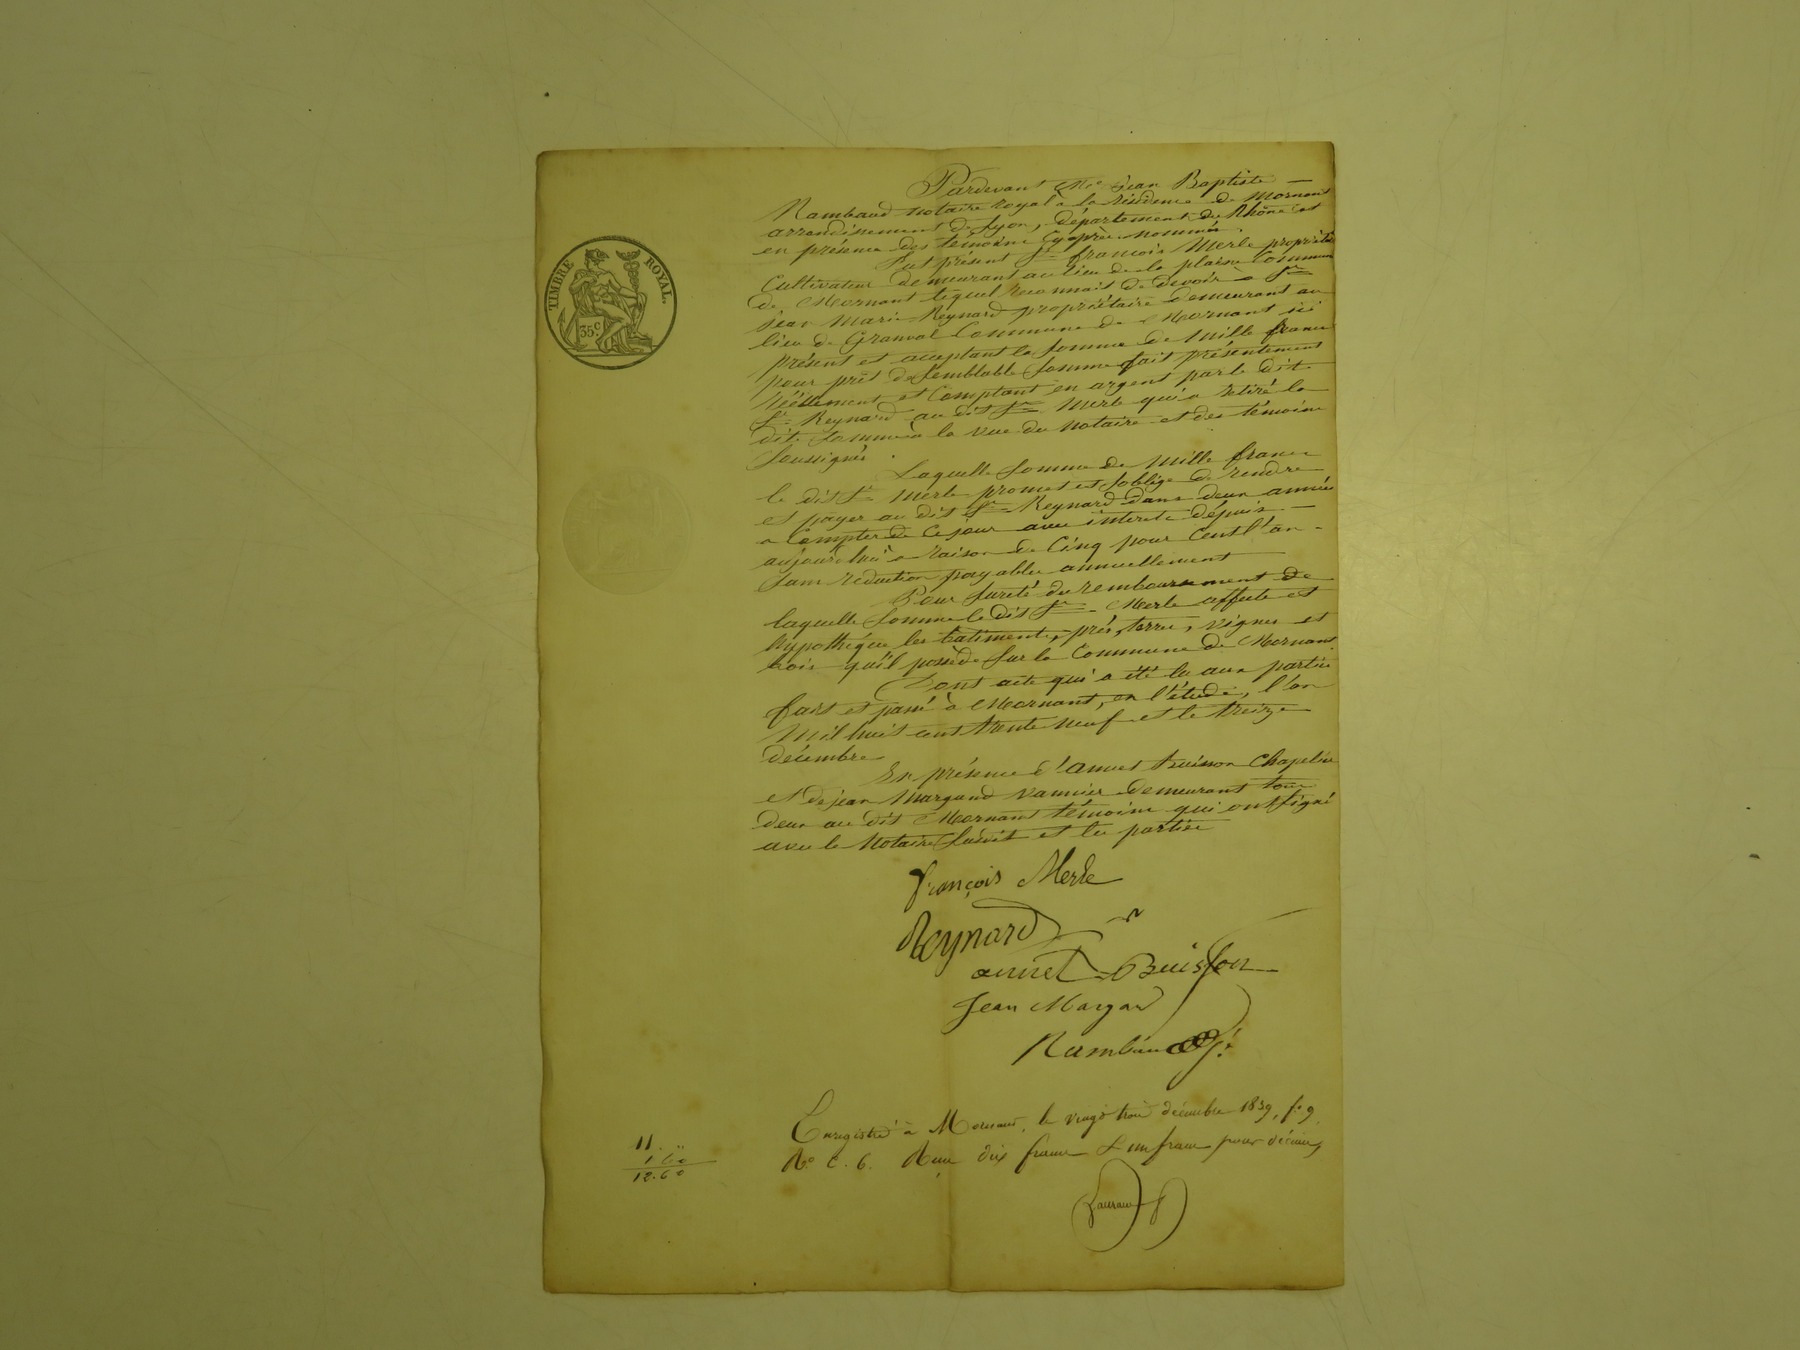 TIMBRE ROYAL.
35 c.
Pardevant Me. Jean Baptiste
Rambaud notaire royal à la résidence de Mornant
arrondissement de Lyon, département du Rhône et
en présence des témoins cy après nommés.
Fut présent Sr. françois Merle propriétaire
Cultivateur demeurant au lieu de la plaine Commune
de Mornant lequel Reconnait de devoir à Sr.
Jean Marie Reynard propriétaire demeurant au
lieu de Granval Commune de Mornant ici
présent et acceptant la somme de Mille francs
pour prêt de Semblable Somme fait présentement
Réellement et Comptant en argent par le dit
Sr. Reynard au dit Sr. Merle qui a retiré la
dite Somme à la vue du notaire et des témoins
Soussignés.
Laquelle Somme de Mille francs
le dit Sr. Merle promet et s'oblige de rendre
et payer au dit Sr. Reynard dans deux années
a Compter de Ce jour avec interets dépuis
aujourd'hui a raison de Cinq pour Cent l'an
Sans réduction payables annuellement
Pour Sureté du remboursement de
laquelle Somme le dit Sr. Merle affecte et
hypothéque les batiments, prés, terres, vignes et
bois qu'il possède Sur la Commune de Mornant.
Dont acte qui a été lu aux parties
fait et passé à Mornant, en l'étude, l'an
Mil huit cent trente neuf et le treize
décembre
En présence d'annet buisson Chapelier
et de jean Margand vannier demeurant tous
deux au dit Mornant témoins qui ont signé
avec le Notaire Susdit et les parties
françois Merle
Reynard
annet Buisson
Jean Margan
Rambaud
Enregistré à Mornant, le vingt trois décembre 1839, fo. 9.
Ro. C. 6. Reçu dix francs & un franc pour décime,
11.
1.60
12.60